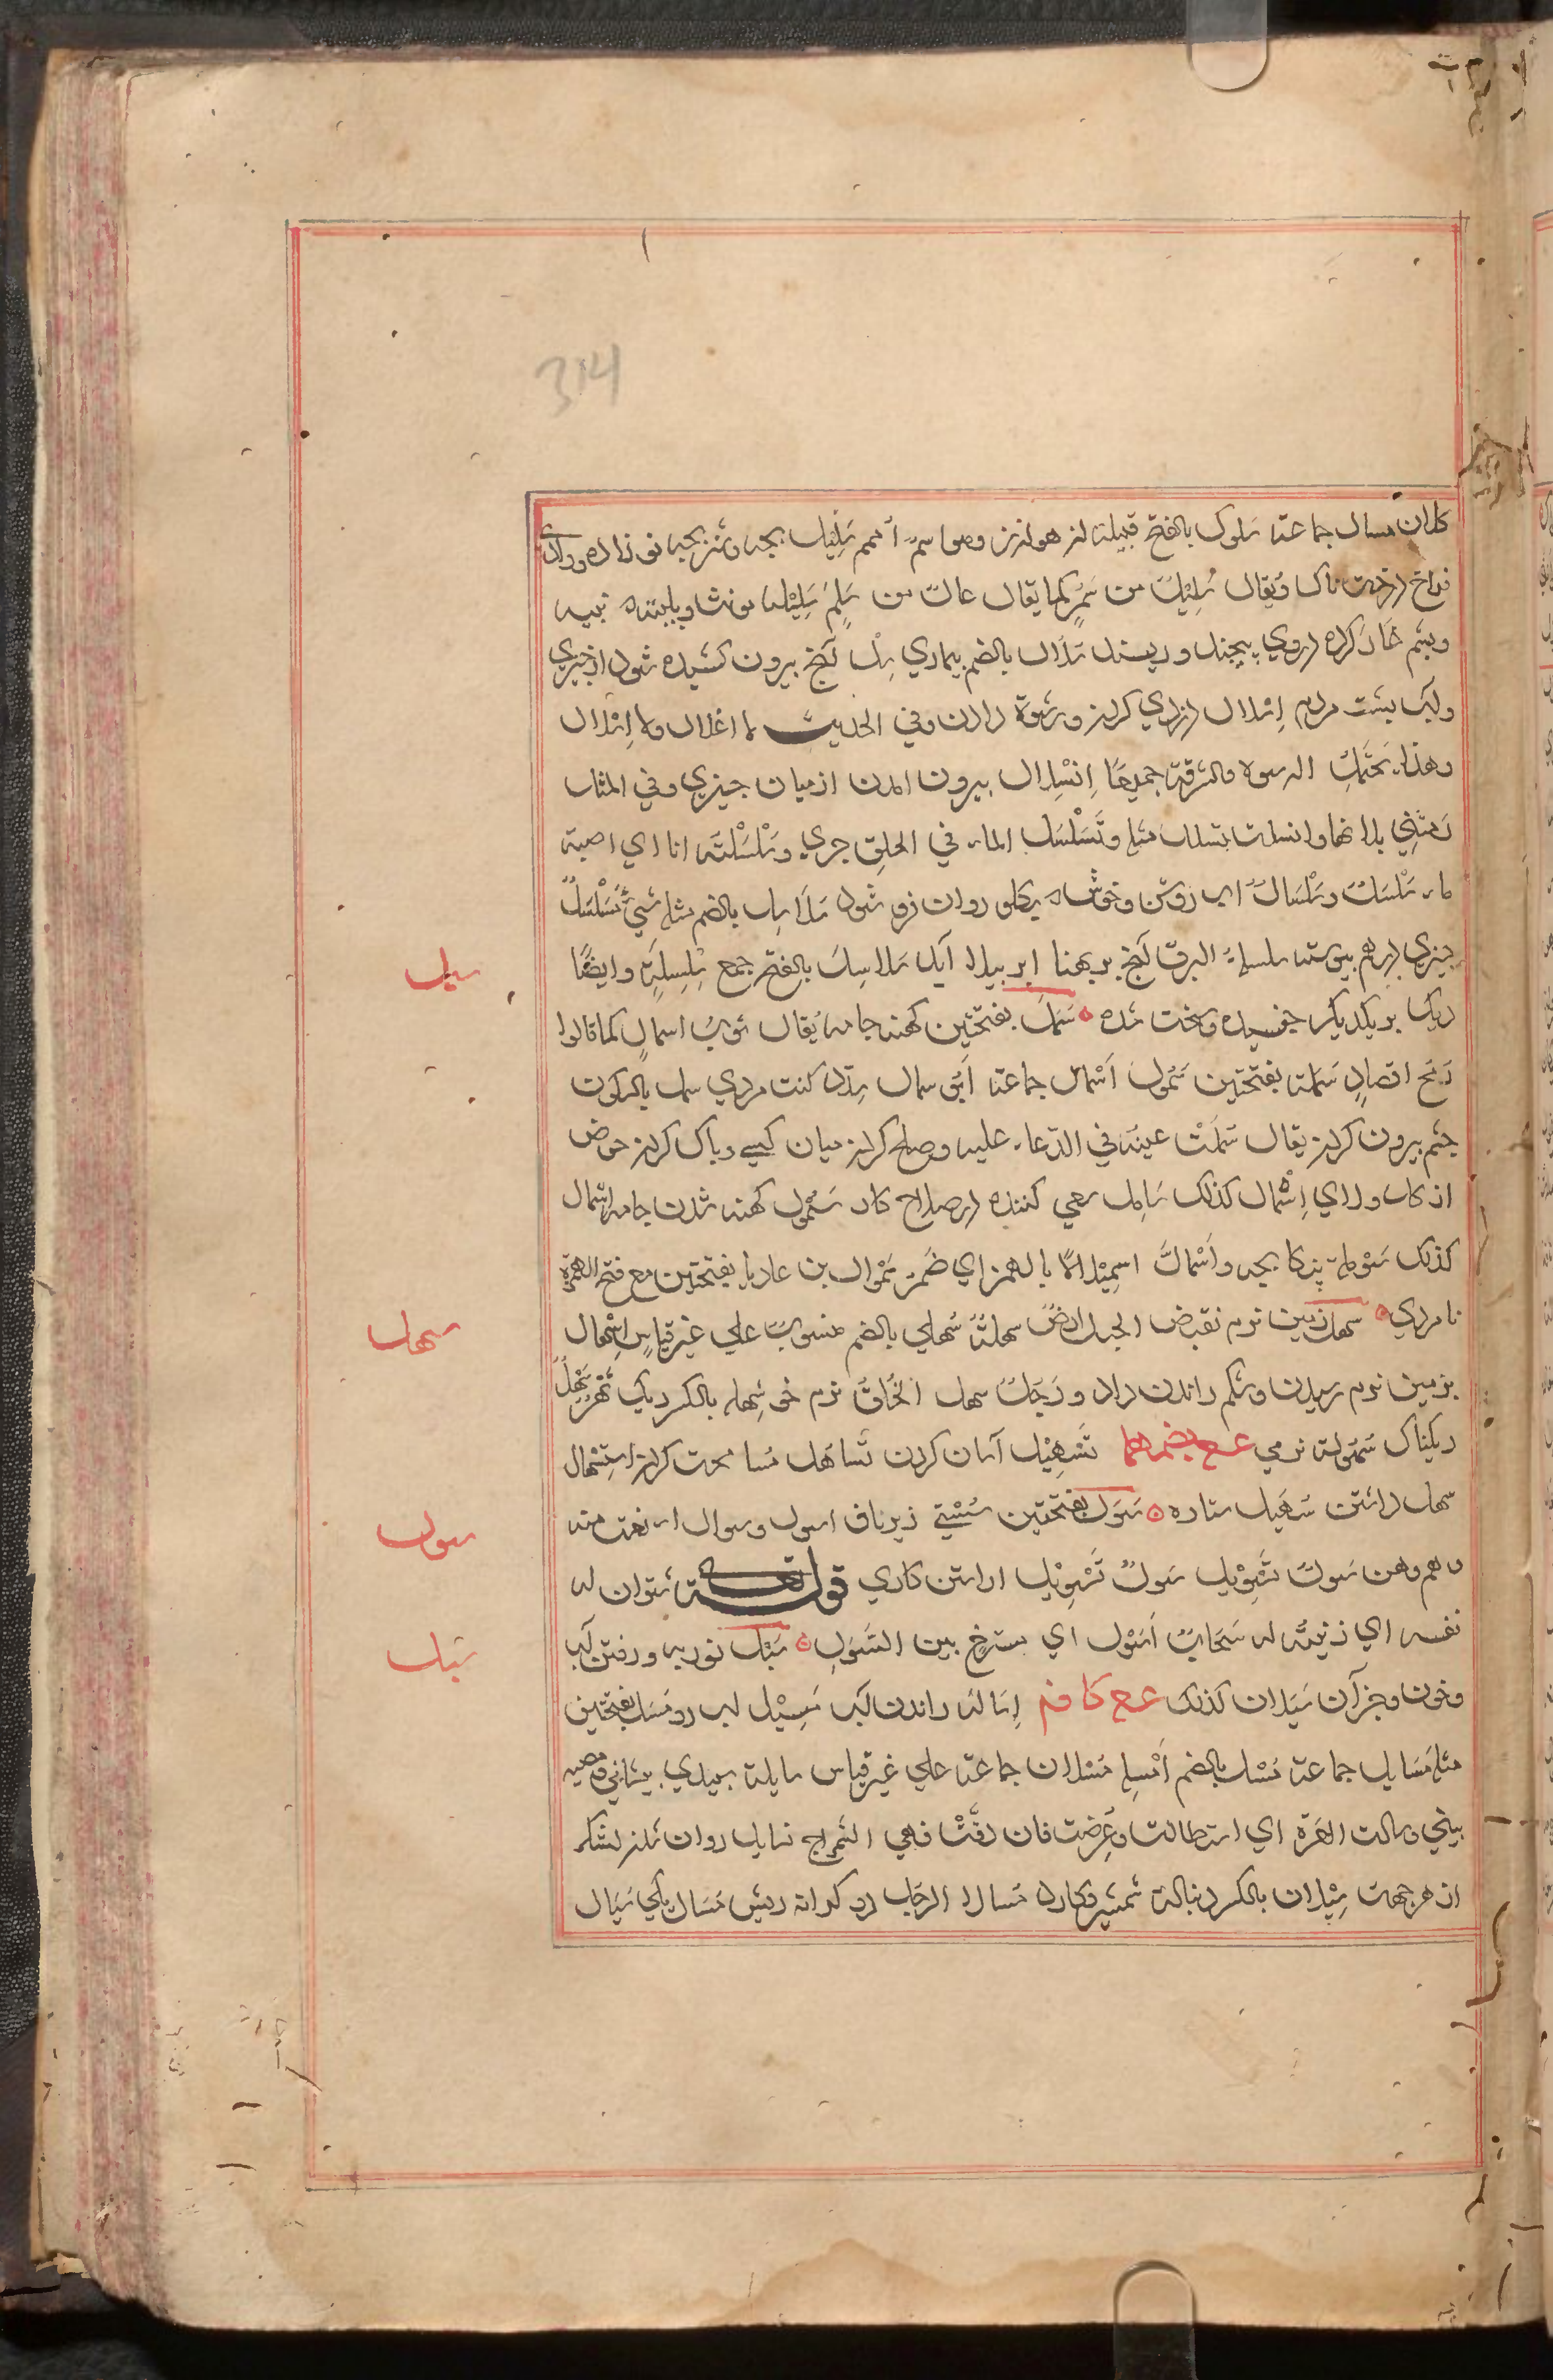 314
کلان مسال جماعة سلول بالفتح قبیلة از هوازن وهو اسم امهم سلیل بچه ونیز بچه نو زاده ووادی
فراخ درخت ناک ویقال سلیل من سمر کما یقال غال من سلم سلیلة مونث
وپشم کرده دروی پیچند وریسند سلال بالضم بیماری سل آنچ بیرون کشیده شود از چیزی
وآب پشت مردم اسلال دزدی کردن ورشوة دادن وفی الحدیث لا اغلال ولا اسلال
وهذا یحتمل الرشوة والسرقة جمیعًا اِنْسِلال بیرون آمدن از میان چیزی وفی المثل
رمتنی بدائها وانسلت تسلل مثله وتَسَلْسَل الماء فی الحلق جری وسَلْسَلْتُه انا ای صببته
ماء سَلْسَل وسَلْسَال ای روشن وخوش که بگلو روان فرو شود سلاسل بالضم مثله شیءٌ مُسَلْسَلٌ
چیزی درهم پیوسته سلسلة البرق آنچ بر پهنا ابر پیدا آید سلاسل بالفتح جمع سِلْسِلَة وایضًا
ریک بر یکدیکر چفسیده وسخت شده سَمَل بفتحتین کهنه جامه یُقال ثوبٌ اسمالٍ کما قالوا
رمح اقصادٍ سَمَلة بفتحتین سُمُول اَسْمَال جماعة ابو سمال کنت مردی سمل بالسکون
چشم بیرون کردن یقال سُمِلَتْ عینه فی الدّعاء علیه وصلح کردن میان کسی وپاک کردن حوض
از کل ولای اِسْمال کذلک سَامِل سعی کننده در صلاح کار سُمُول کهنه شدن جامه اسمال
کذلک سَوْمَلة پنکانچه واَسْمَأَلَّ اسمِئْلالًا بالهمز ای ضَمَرَ سَمَوْأل بن عادیا بفتحتین مع فتح الهمزة
نام مردی سهل زمین نرم نقیض الجبل ارضٌ سهلةٌ سُهلی بالضم منسوبٌ علی غیر قیاسٍ اِسهال
بزمین نرم رسیدن وشکم راندن دارو ورَجُلٌ سهل الخُلق نرم خو سِهلة بالکسر ریک نَهْرٌ سَهِلٌ
ریکناک سُهُولة نرمی ع ع بضمهما تَسْهِیْل آسان کردن تَسَاهُل مُسامحت کردن استسهال
سهل داشتن سُهَیل ستاره سَوَل بفتحتین سُسْتی زیر ناف اسول وسولاء نعت منه
وهم وهن سُولٌ تَسْوِیل آراستن کاری قوله تعالی سَوَّلَت له
نفسه ای زینته له سَحَابٌ اَسْوَل ای مسترخٍ بین السَّوَلِ سَیْل نوربه ورفتن آب
وخون وجز آن سَیَلان کذلک ع ع کا ف م اِسَالَة راندن آب مَسِیْل آب رو مَسَل بفتحتین
مثله مَسَایِل جماعة مُسُل بالضم اَمْسِلة مُسْلان جماعة علی غیر قیاس سایلة سپیدی پیشانی وقصبه
بینی وسالت الغرّة ای استطالت وعَرُضت فان دَقّتْ فهی الشمراخ تسایل روان شدن لشکر
از هر جهت سِیْلان بالکسر دنباله شمشیر وکارد مُسالا الرجل دو کرانه ریش مُسَال یکی سَیّال
سیل
سهل
سول
سیل